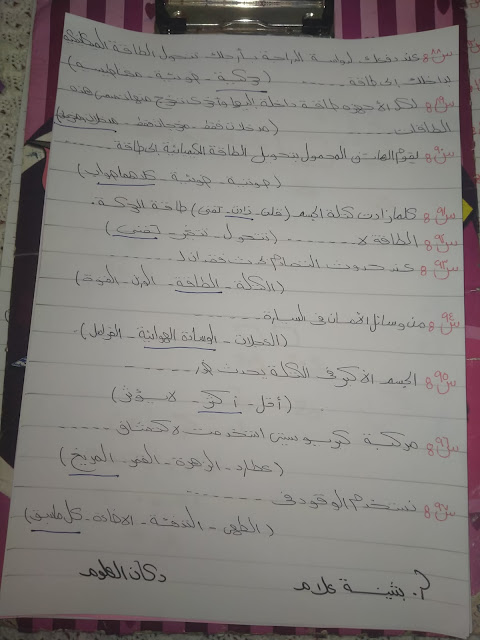 س٨٨ عند دفعك لبدال الدراجة بأرجلك تتحول الطاقة المختزنة
بداخلك إلى طاقة ------ (حركية - ضوئية - مغناطيسية)
س٨٩ لكل الأجهزة طاقة داخلة إليها وأخرى تنتج منها تسمى هذه
الطاقات ------ (مدخلات فقط - مخرجات فقط -
س٩٠ يقوم الهاتف المحمول بتحويل الطاقة الكهربائية إلى طاقة ------
(صوتية - ضوئية - كلاهما صواب)
س٩١ كلما زادت كتلة الجسم (قلت - زادت - تفنى) طاقة الحركة.
س٩٢ الطاقة لا ------ (تتحول - تنتقل - تفنى)
س٩٣ عند حدوث التصادم يحدث فقد لـ ------
(الكتلة - الطاقة - الوزن - القوة)
س٩٤ من وسائل الأمان في السيارة ------
(العجلات - الوسادة الهوائية - الفرامل).
س٩٥ الجسم الأكبر في الكتلة يحدث ضرر ------
(أقل - أكبر - لا يؤثر)
س٩٦ مركبة كريوسيتي استخدمت لاكتشاف ------
(عطارد - الزهرة - القمر - المريخ)
س٩٧ نستخدم الوقود في ------
(الطهي - التدفئة - الإضاءة - كل ما سبق)
م. بثينة علام
دكان العلوم